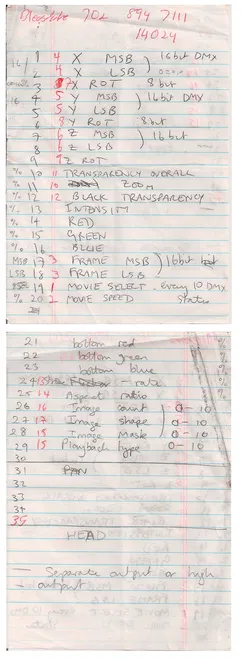 702 894 7111
14024
1 4 X MSB ) 16 bit DMX
2 4 X LSB
3 7 X ROT 8 bit
4 5 Y MSB ) 16 bit DMX
5 5 Y LSB
6 8 Y ROT 8 bit
7 6 Z MSB ) 16 bit
8 6 Z LSB
9 9 Z ROT
% 10 11 TRANSPARENCY OVERALL
% 11 10 ZOOM
% 12 12 BLACK TRANSPARENCY
% 13 INTENSITY
% 14 RED
% 15 GREEN
% 16 BLUE
MSB 17 3 FRAME MSB ) 16 bit
LSB 18 3 FRAME LSB
19 1 MOVIE SELECT - every 10 DMX
% 20 2 MOVIE SPEED status
21 bottom red %
22 bottom green %
23 bottom blue %
24 - rate
25 14 Aspect ratio
26 16 Image count 0-10
27 17 Image shape 0-10
28 18 Image Mask 0-10
29 15 Playback type
30
31 PAN
32
33
34
35
HEAD
- Separate output or high
- output